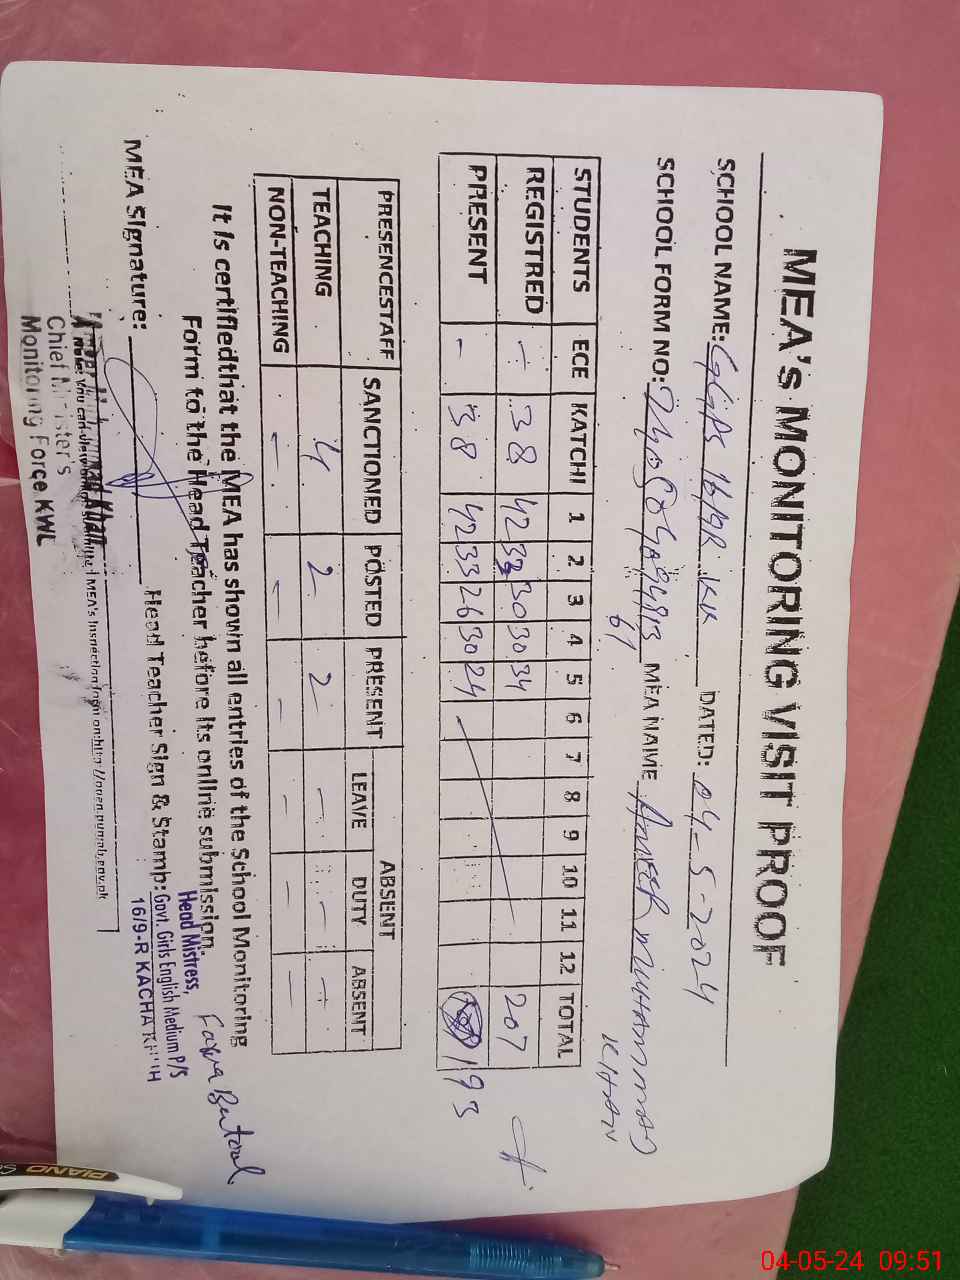 MEA'S MONITORING VISIT PROOF
SCHOOL NAME: GGPS 16/9R KK DATED: 04-5-2024
SCHOOL FORM NO: MEA NAME Ameer Muhammad
61 KHAN
STUDENTS ECE KATCHI 1 2 3 4 5 6 7 8 9 10 11 12 TOTAL
REGISTRED - 38 42 33 30 30 34 207
PRESENT - 38 42 33 26 30 24 193
PRESENCESTAFF SANCTIONED POSTED PRESENT ABSENT
LEAVE DUTY ABSENT
TEACHING 4 2 2 - - -
NON-TEACHING - - - - - -
It is certifiedthat the MEA has shown all entries of the School Monitoring
Form to the Head Teacher before its online submission.
MEA Signature: Head Teacher Sign & Stamp:
Head Mistress,
Govt. Girls English Medium P/S
16/9-R KACHA KHUH
MEA's Inspection form on: http://open.punjab.gov.pk
Khan
Chief Minister's
Monitoring Force KWL
PIANO
04-05-24 09:51